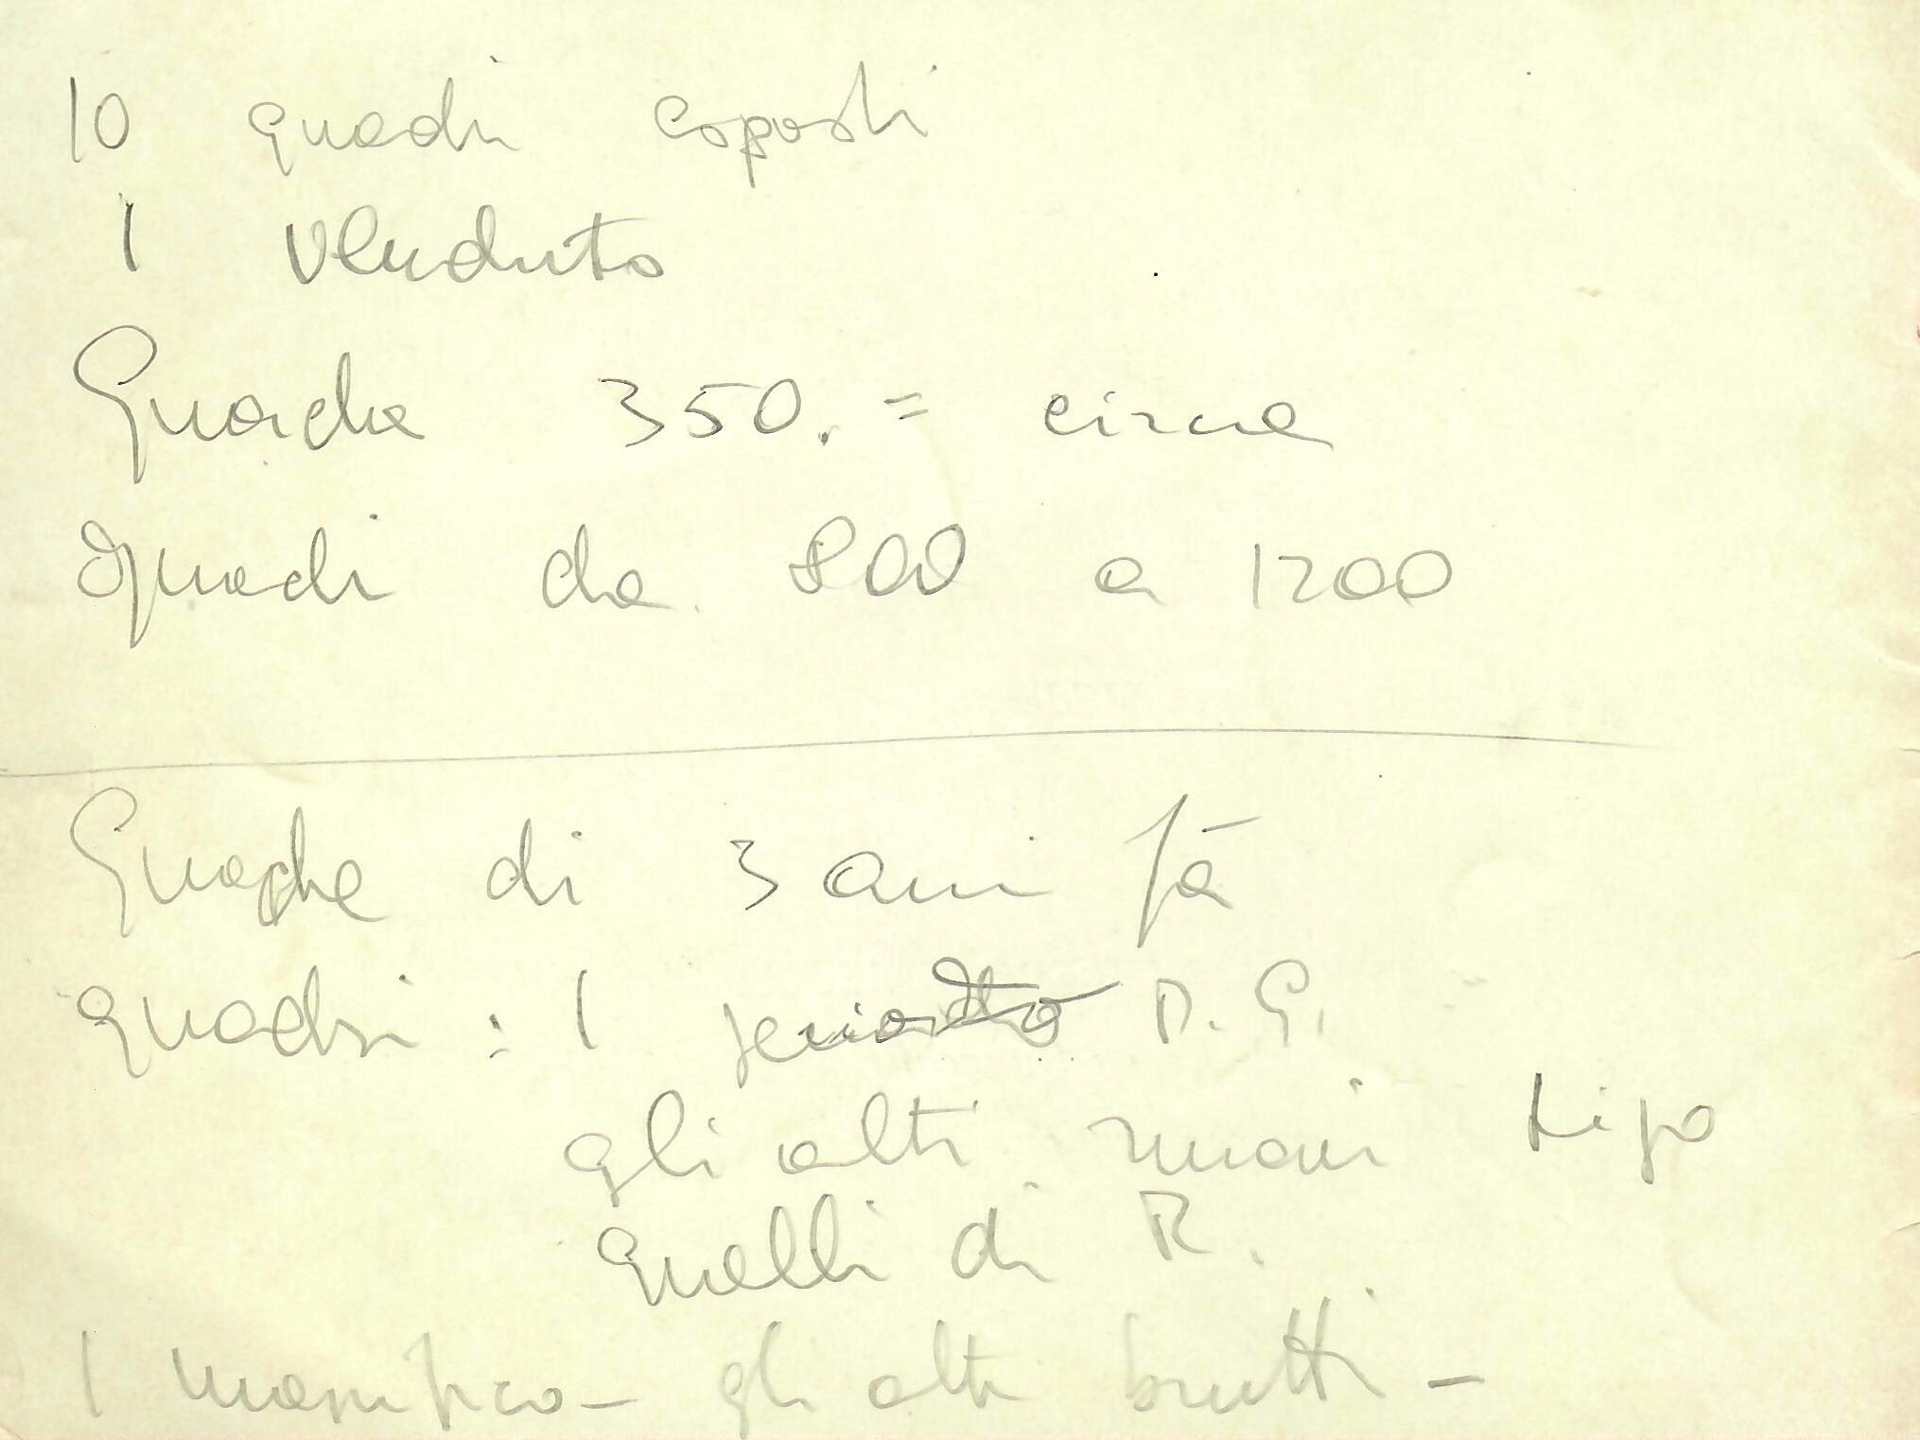 10 quadri esposti
1 venduto
Guache 350.= circa
quadri da 800 a 1200
Guache di 3 anni fà
quadri : 1 P. G.
gli altri nuovi tipo
quelli di R.
1 magnifico - gli altri brutti -